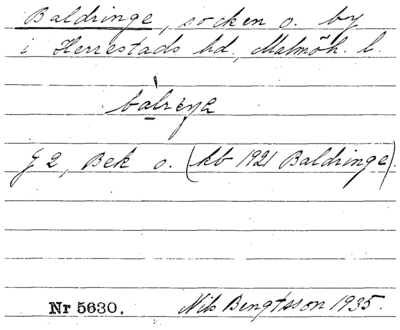 Baldringe, socken o. by
i Herrestads hd, Malmöh. l.
bàlrèŋa
G 2, Bek o. (kb 1921 Baldringe).
Nr 5630. Nils Bengtsson 1935.